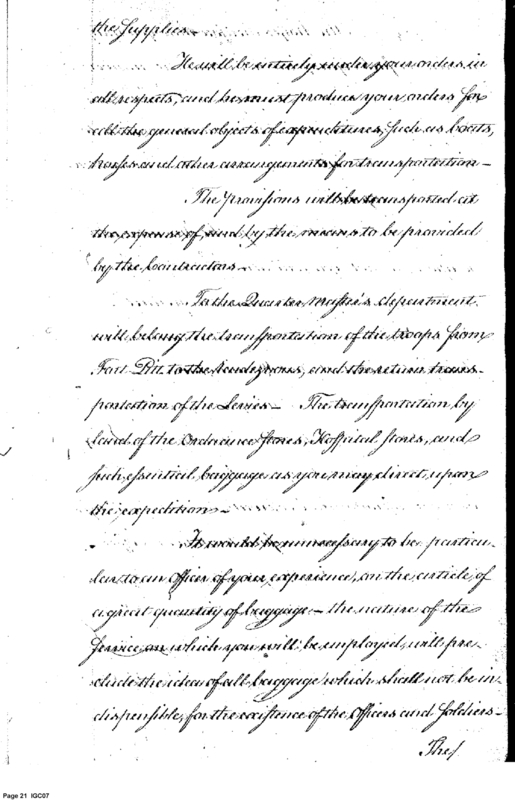 the Supplies—
He will be entirely under your orders in
all respects, and he must produce your orders for
all the general objects of expenditures, such as boats,
horses and other arrangements for transportation—
The Provisions will be transported at
the expense of, and by the means to be provided
by the Contractors—
To the Quarter Master's department
will belong the transportation of the troops from
Fort Pitt to the rendezvous, and the return trans-
portation of the Levies— The transportation by
land of the Ordnance Stores, Hospital Stores, and
such essential baggage as you may direct, upon
the expedition—
It would be unnecessary to be particu-
lar to an Officer of your experience, on the article of
a great quantity of baggage— the nature of the
Service on which you will be employed, will pre-
clude the idea of all baggage which shall not be in-
dispensible, for the existence of the Officers and Soldiers—
The/
Page 21 IGC07